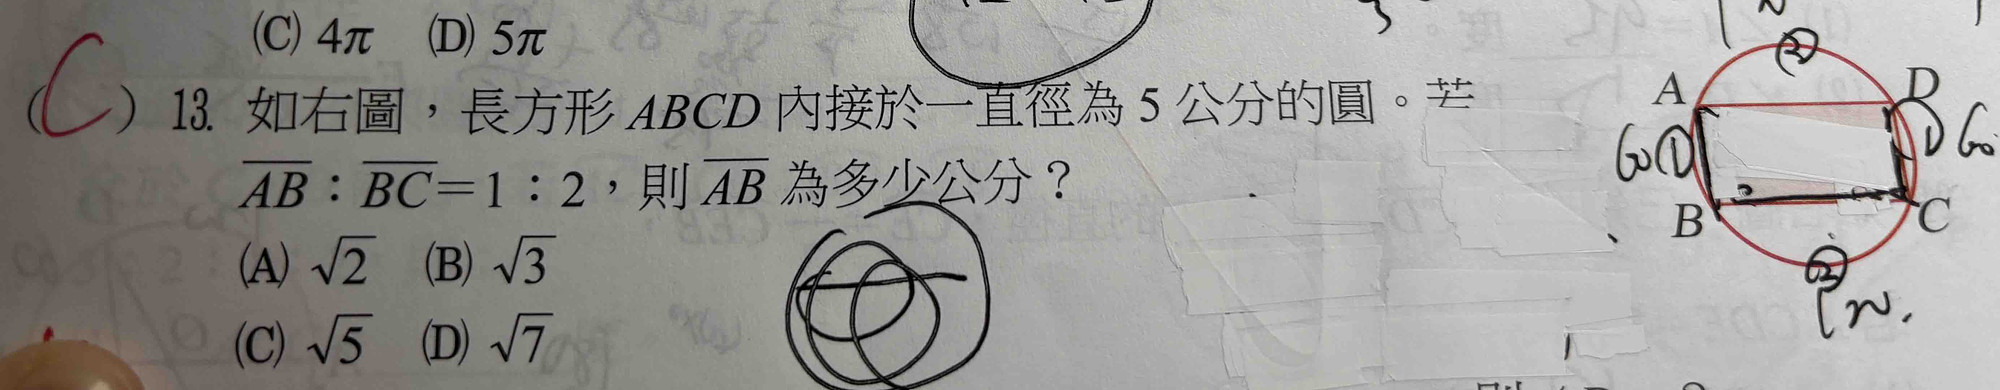 (C) 4π (D) 5π
(C) 13. 如右圖，長方形 ABCD 內接於一直徑為 5 公分的圓。若
AB：BC=1：2，則 AB 為多少公分？
(A) √2 (B) √3
(C) √5 (D) √7
②
A D
60 ① ① 60
B C
②